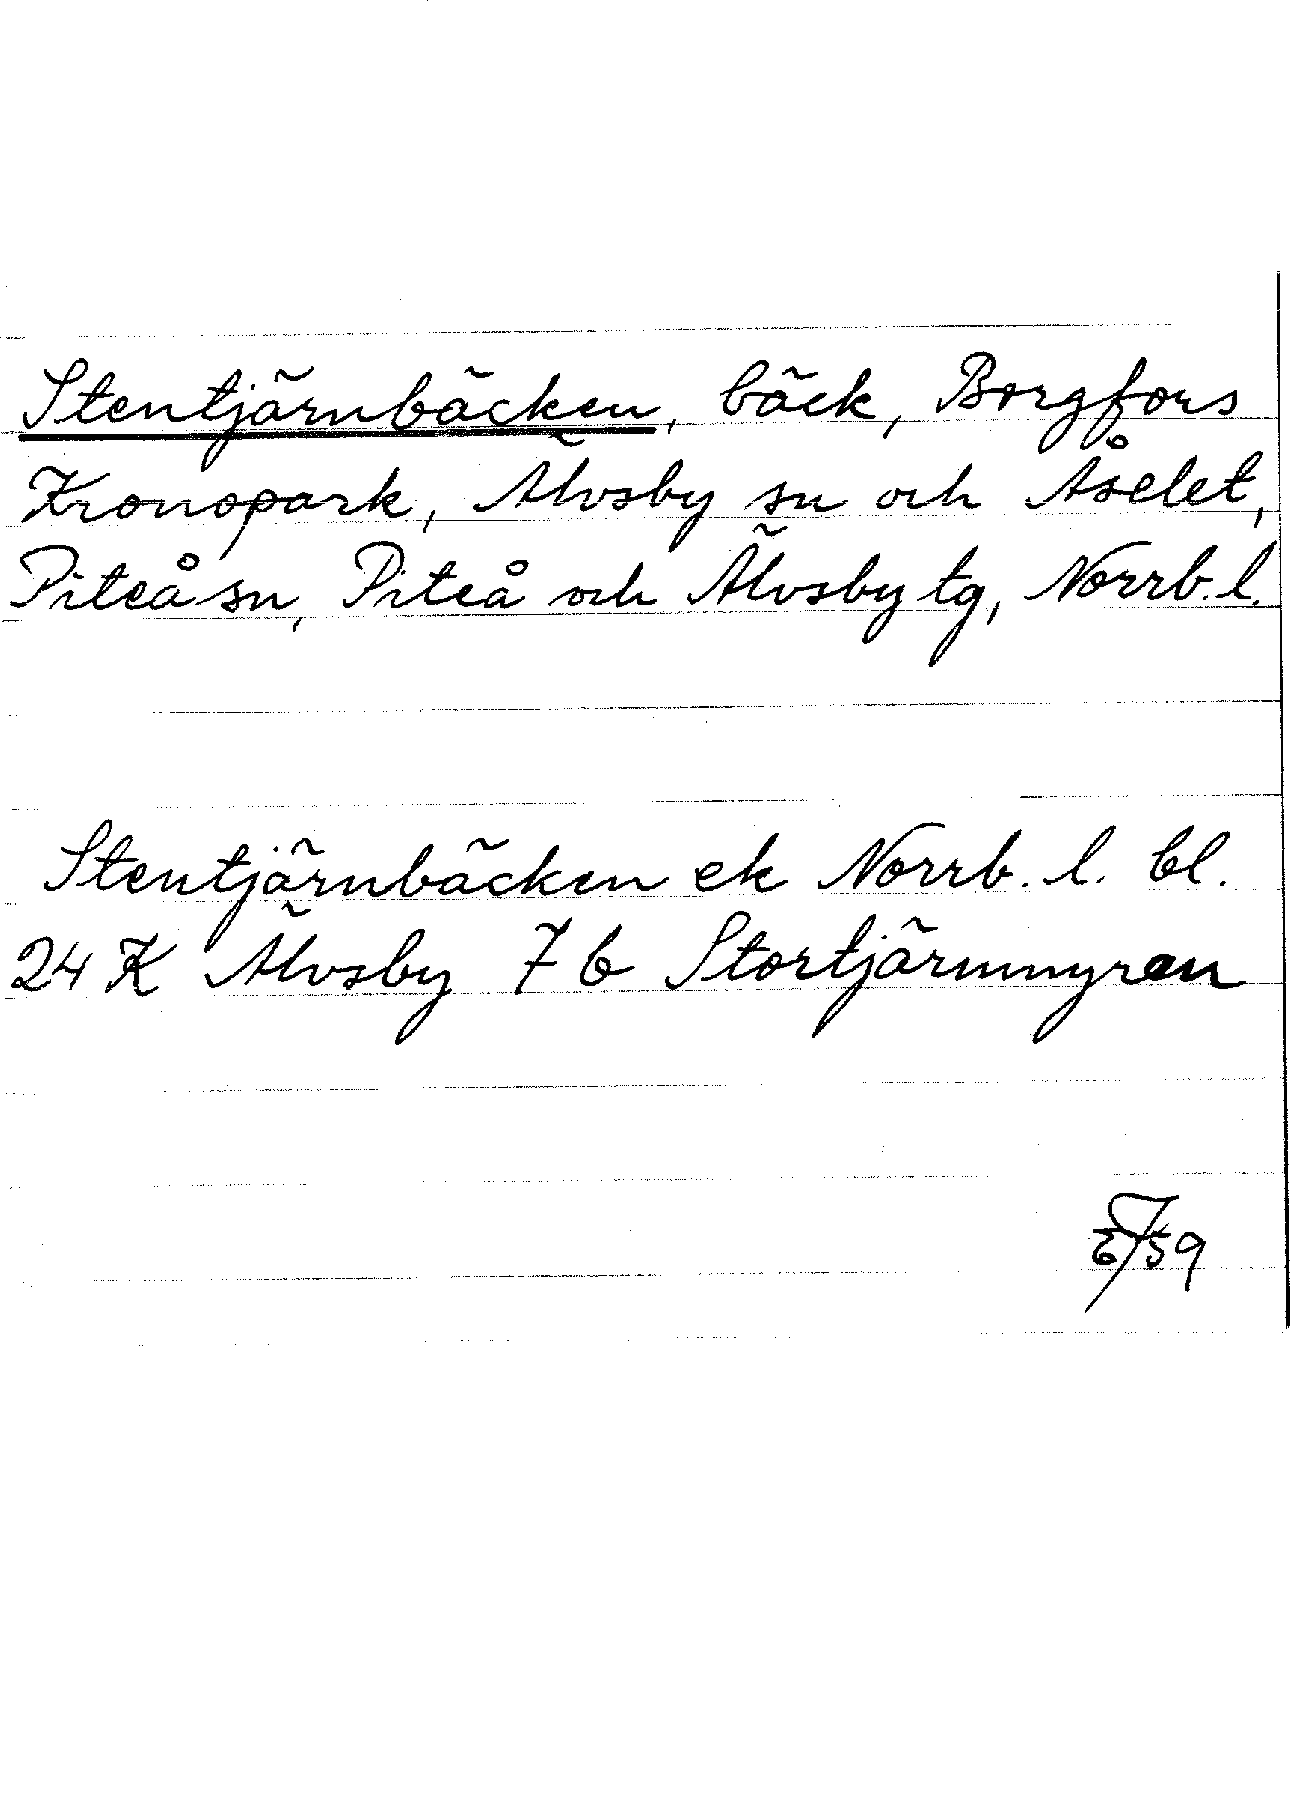 Stentjärnbäcken, bäck, Borgfors
Kronopark, Älvsby sn och Åselet,
Piteå sn, Piteå och Älvsby tg, Norrb. l.
Stentjärnbäcken ek Norrb. l. bl.
24 K Älvsby 7 b Stortjärnmyren